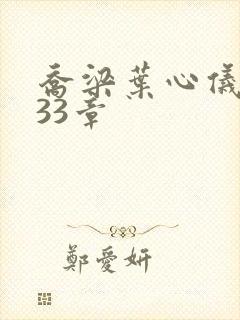 喬梁葉心儀
33章
鄭愛妍